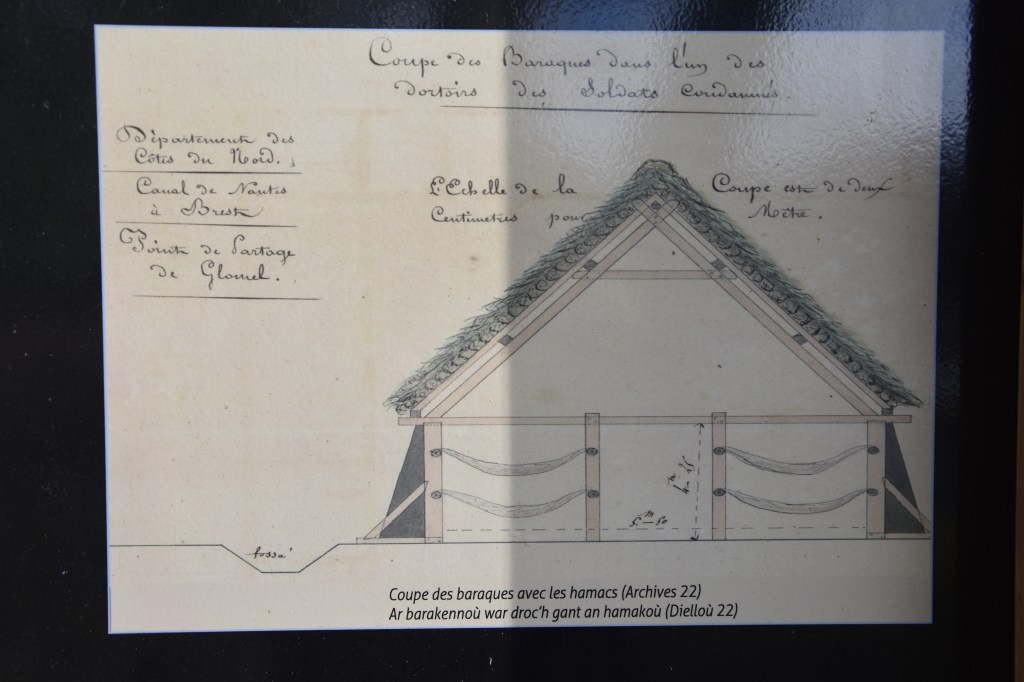 Coupe des Baraques dans l'un des
dortoirs des Soldats Condamnés.
Département des
Côtes du Nord.
Canal de Nantes
à Brest
Point de Partage
de Glomel.
L'Echelle de la Coupe est de deux
Centimetres pour Mètre.
fossé
Coupe des baraques avec les hamacs (Archives 22)
Ar barakennoù war droc'h gant an hamakoù (Dielloù 22)